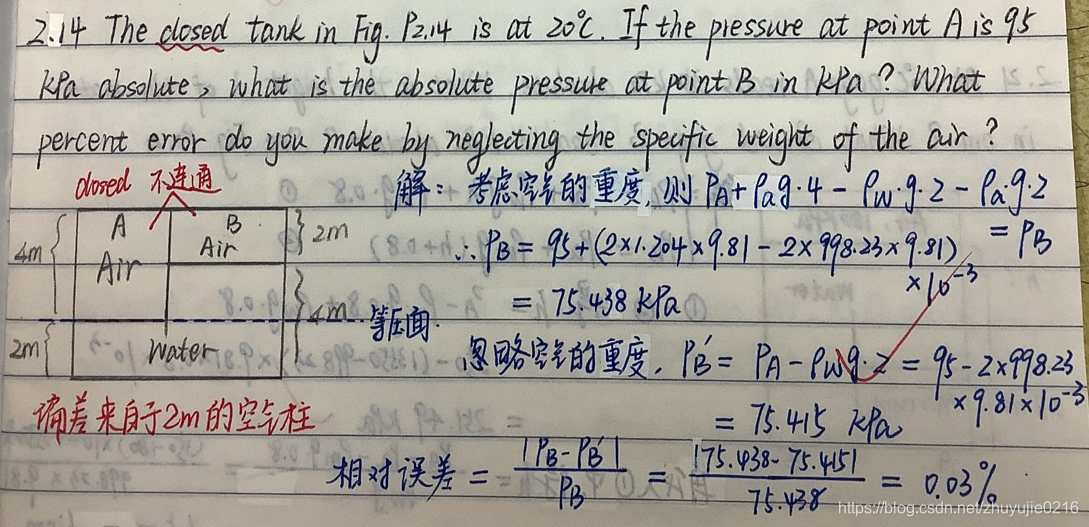 2.14 The closed tank in Fig. P2.14 is at 20℃. If the pressure at point A is 95
kPa absolute, what is the absolute pressure at point B in kPa? What
percent error do you make by neglecting the specific weight of the air?
closed 不连通
解: 考虑空气的重度, 则 PA+ρag·4-ρw·g·2-ρa·g·2
= PB
A
B
4m
Air
Air
2m
∴PB = 95+(2×1.204×9.81-2×998.23×9.81)
×10⁻³
= 75.438 kPa
4m
等压面.
2m
Water
忽略空气的重度, PB' = PA-ρwg·2 = 95-2×998.23
×9.81×10⁻³
= 75.415 kPa
偏差来自于2m的空气柱
相对误差 = |PB-PB'| / PB = |75.438-75.415| / 75.438 = 0.03%
https://blog.csdn.net/zhuyujie0216